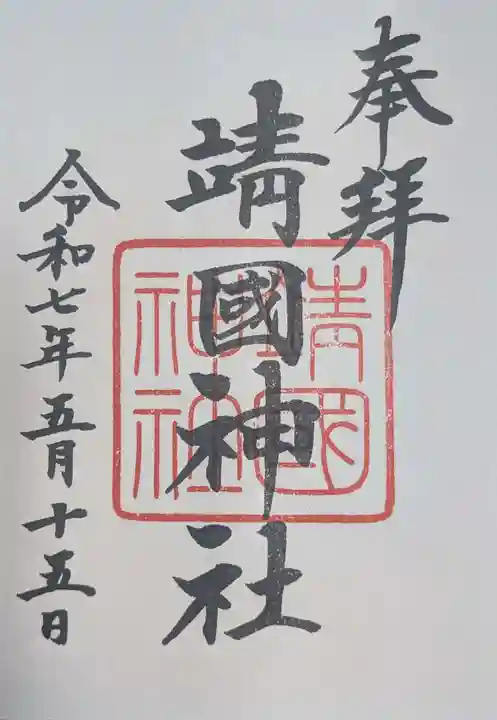 奉拝
靖國神社
靖國
神社
令和七年五月十五日